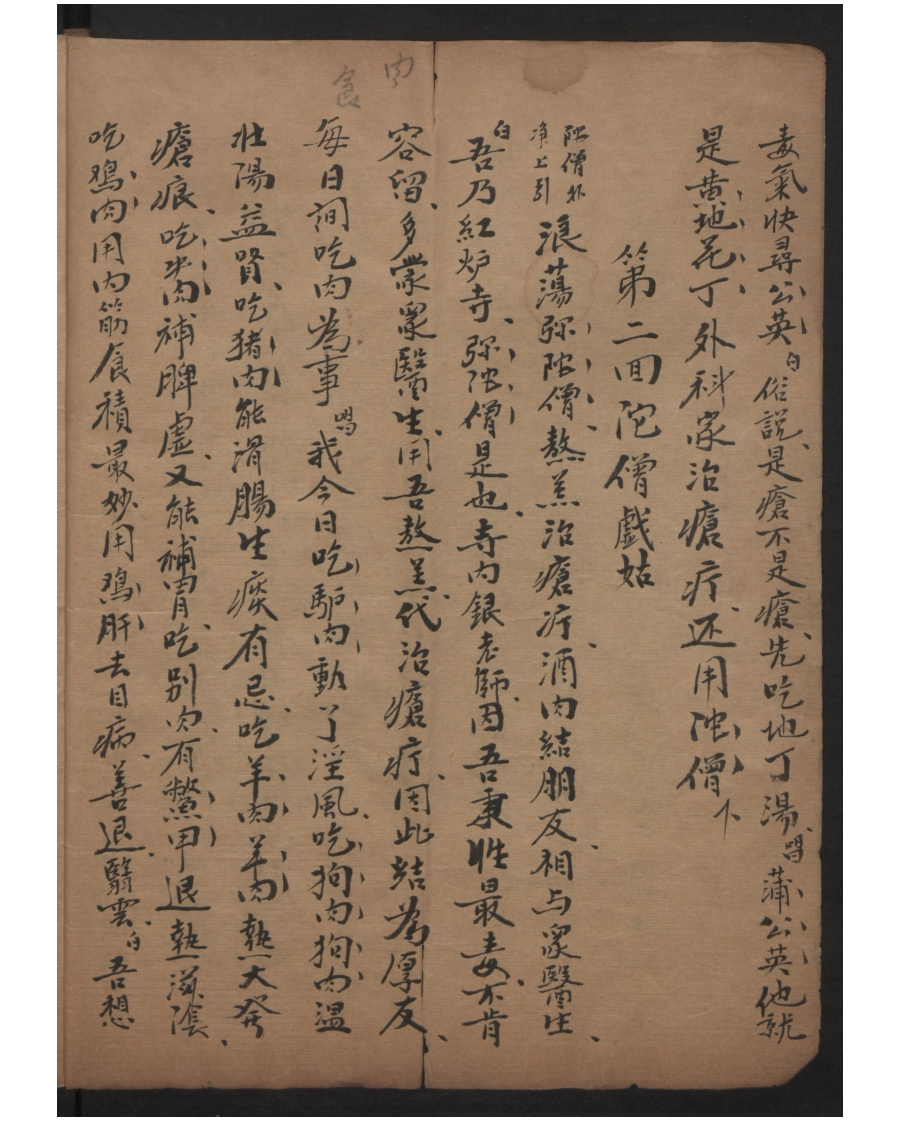 毒氣快尋公英白俗說是瘡不是瘡先吃地丁湯唱蒲公英他就
是黃地花丁外科家治瘡疔还用陀僧下
第二回陀僧戲姑
陀僧扑
净上引
浪蕩弥陀僧熬羔治瘡疔酒肉結朋友相与衆醫生
白吾乃紅炉寺弥陀僧是也寺内銀老師因吾秉性最毒不肯
容留多蒙衆醫生用吾熬羔代治瘡疔因此結為厚友
每日間吃肉為事唱我今日吃驴肉動了淫風吃狗肉狗肉温
壯陽益腎吃猪肉能滑腸生痰有忌吃羊肉羊肉熱大癹
瘡痕吃肉補脾虛又能補胃吃别肉有鱉甲退熱滋陰
吃鷄肉用内筋食積最妙用鷄肝去目病善退翳雲白吾想
肉
食